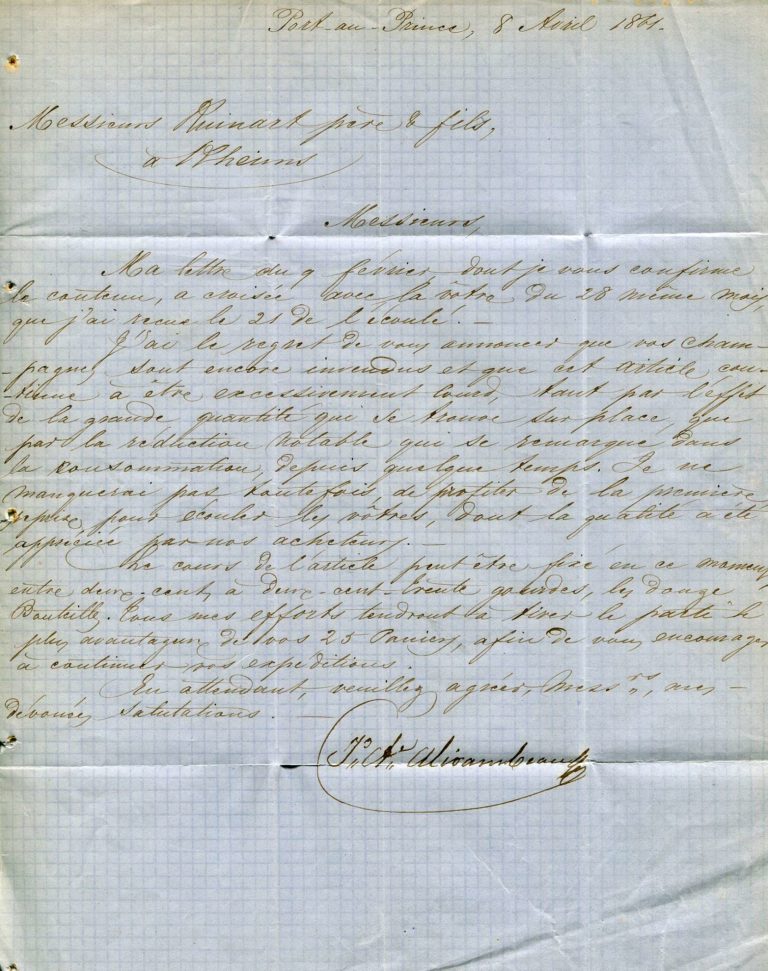 Port-au-Prince, 8 Avril 1861.
Messieurs Ruinart père & fils,
à Rheims
Messieurs,
Ma lettre du 9 février dont je vous confirme
le contenu, a croisée avec la vôtre du 28 même mois,
que j'ai reçue le 21 de l'écoulé. —
J'ai le regret de vous annoncer que vos Cham-
-pagnes sont encore invendus et que cet article con-
-tinue à être excessivement lourd, tant par l'effet
de la grande quantité qui se trouve sur place, que
par la réduction notable qui se remarque dans
la consommation, depuis quelque temps. Je ne
manquerai pas toutefois, de profiter de la première
reprise pour écouler les vôtres, dont la qualité a été
appréciée par nos acheteurs. —
Le cours de l'article peut être fixé en ce moment
entre deux-cents à deux-cent-trente gourdes, les douze
Bouteilles. Tous mes efforts tendront à tirer le parti le
plus avantageux de vos 25 Paniers, afin de vous encourager
à continuer vos expéditions.
En attendant, veuillez agréer, Mess.rs, mes
dévouées salutations. —